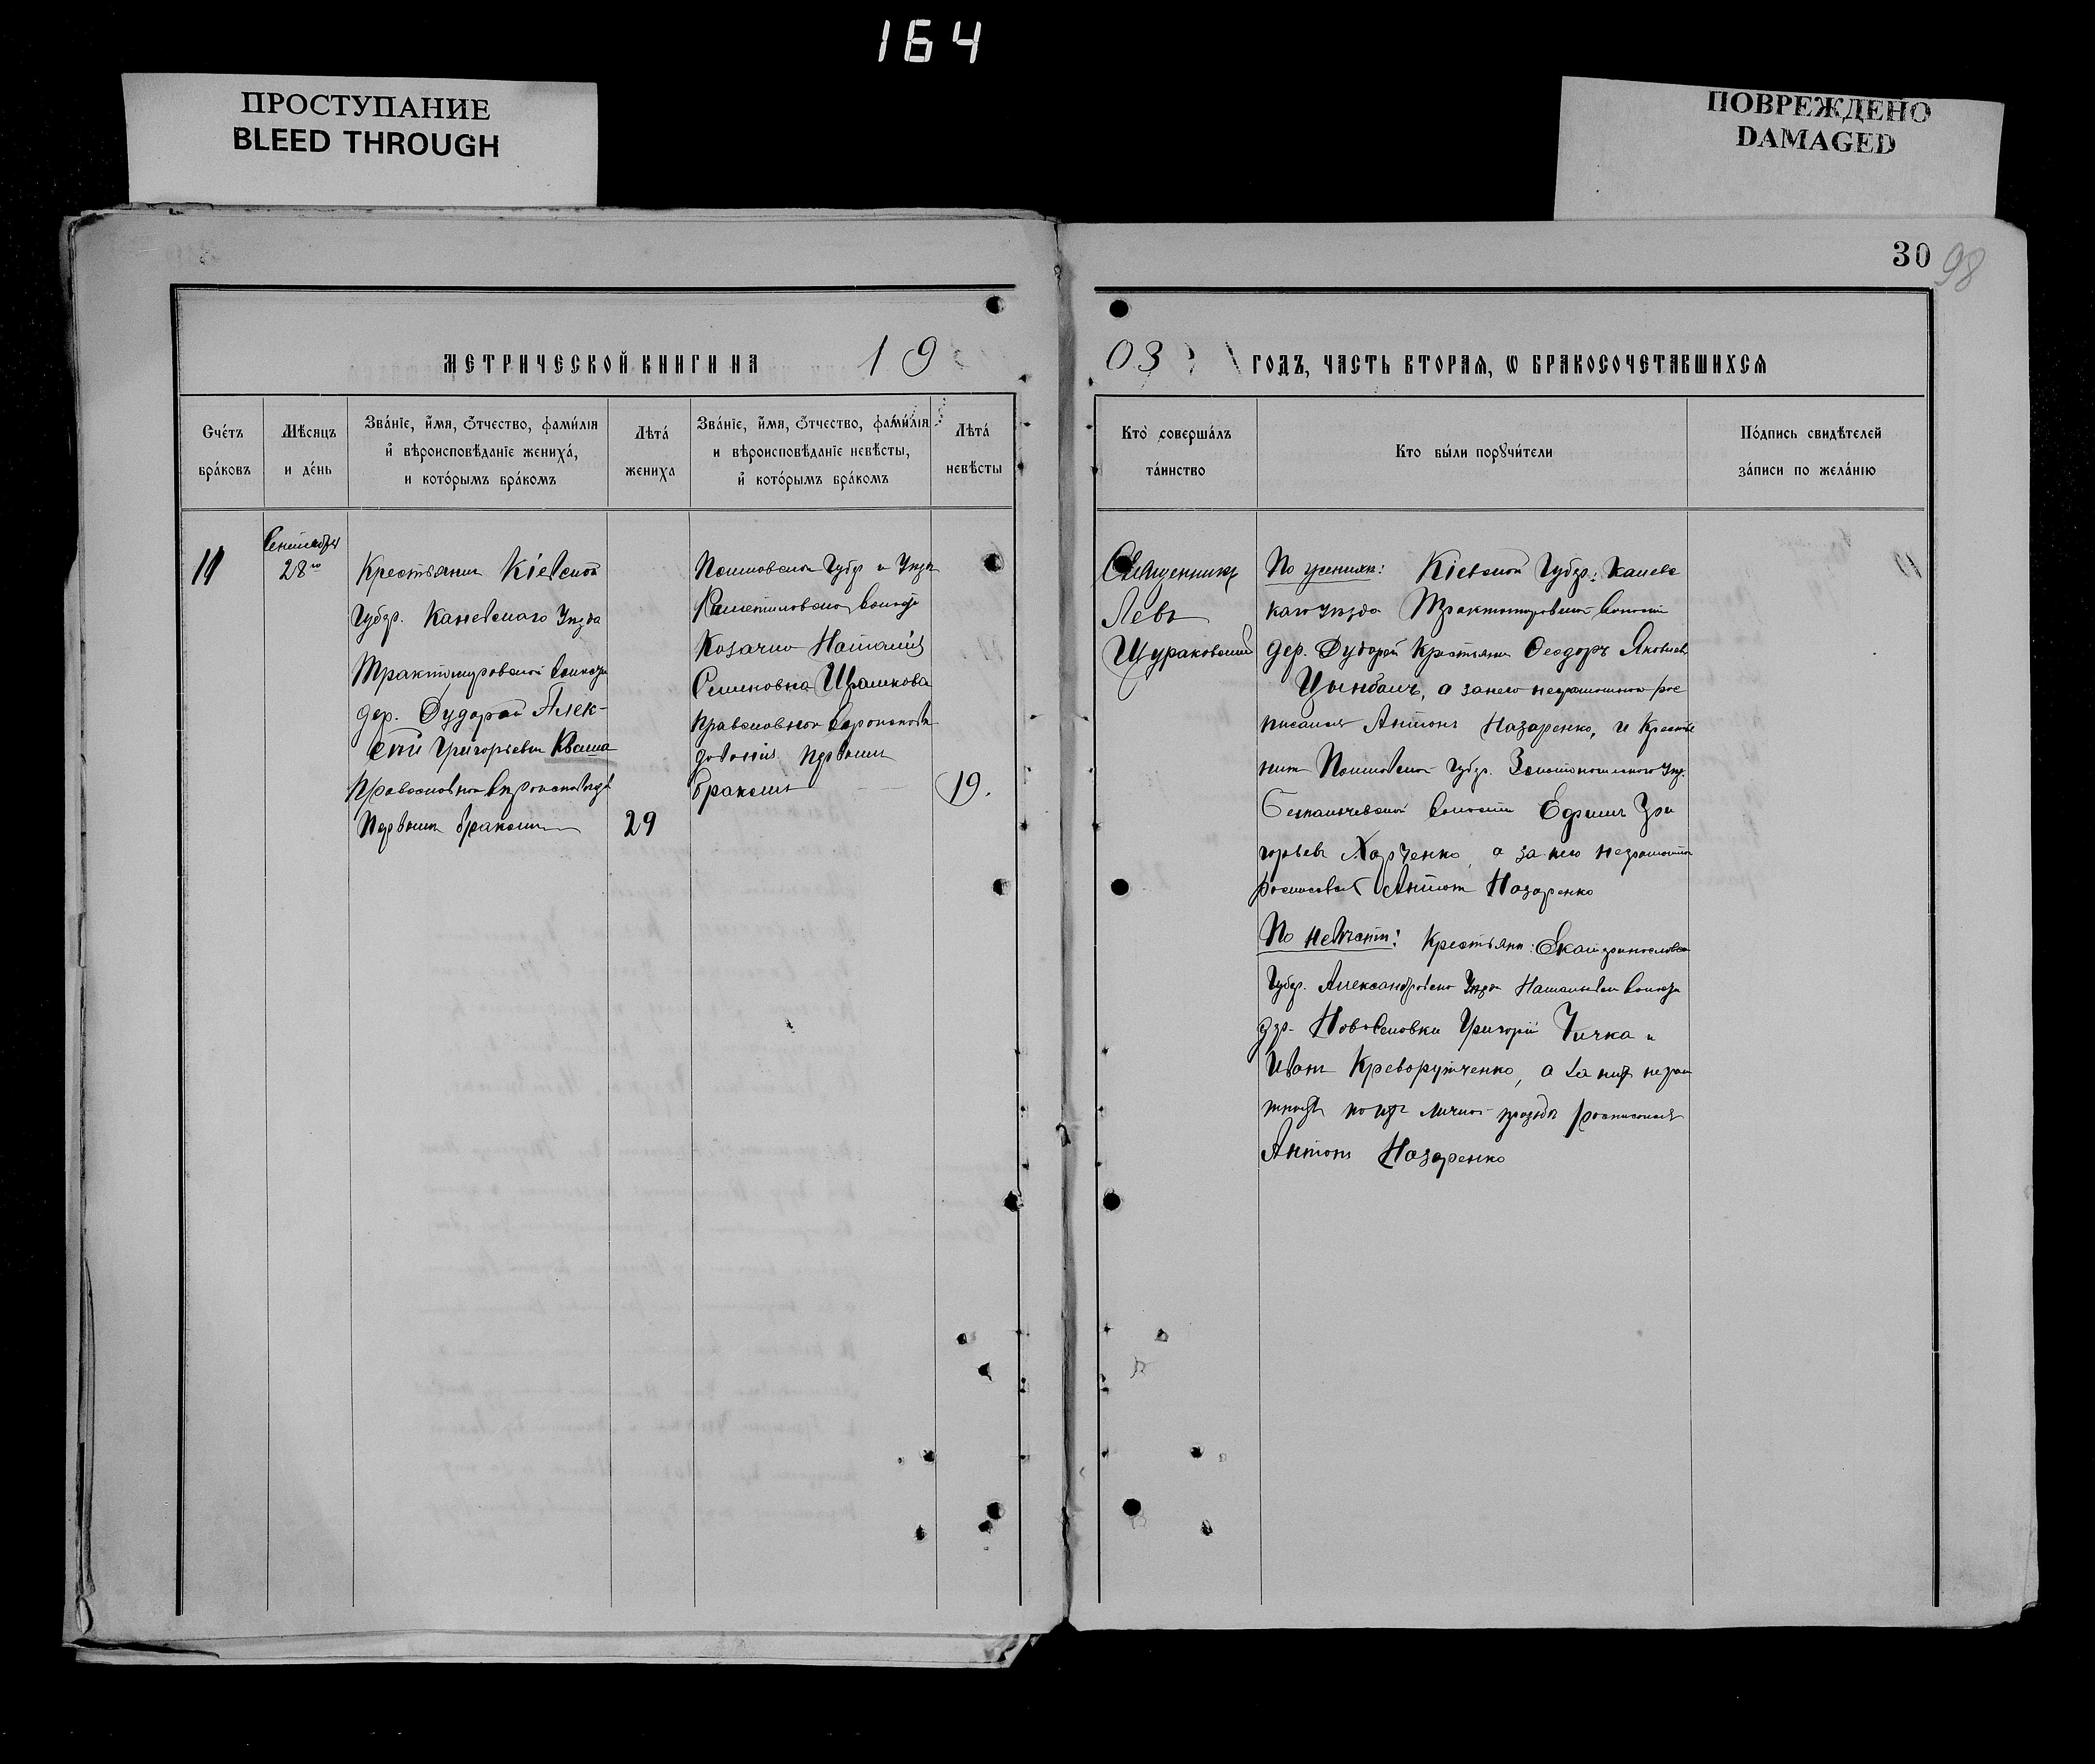 164
ПРОСТУПАНИЕ
BLEED THROUGH
ПОВРЕЖДЕНО
DAMAGED
30 98
МЕТРИЧЕСКОЙ КНИГИ НА 19
03 ГОДЪ, ЧАСТЬ ВТОРАЯ, Ѡ БРАКОСОЧЕТАВШИХСЯ
Счетъ
браковъ
Мѣсяцъ
и день
Званіе, имя, отчество, фамилія
и вѣроисповѣданіе жениха,
и которымъ бракомъ
Лѣта
жениха
Званіе, имя, отчество, фамилія
и вѣроисповѣданіе невѣсты,
и которымъ бракомъ
Лѣта
невѣсты
Кто совершалъ
таинство
Кто были поручители
Подпись свидѣтелей
записи по желанію
Сентября
28
Крестьянинъ Кіевской
Губер. Каневскаго Уѣзда
Трактомировской волости
дер. Дударей Алек-
сѣй Григорьевъ Кваша
Православнаго
Первымъ бракомъ
29
Полтавской Губер и Уѣзда
Решетиловской волости
Козачка Наталія
Семеновна
православнаго вѣроисповѣ
данія первымъ
бракомъ
19.
Священникъ
Левъ
Щураковскій
По женихѣ: Кіевской Губер: Каневс
каго уѣзда Трактомировской волости
дер. Дударей Крестьянинъ Ѳеодоръ Яковлевъ
Цымбалъ, а за него неграмотнаго рос
писался Антонъ Назаренко, и Кресть
нинъ Полтавской Губер. Золотоношскаго Уѣз.
волости Ефимъ Гри
горьевъ Харченко, а за него неграмотнаго
росписался Антонъ Назаренко
По невѣстѣ: Крестьяне: Екатеринославской
Губер. Александровскаго Уѣзда волости
дер. Григорій Чичка и
Иванъ Криворутченко, а за нихъ негра
мотныхъ по ихъ личной прозьбѣ росписался
Антонъ Назаренко